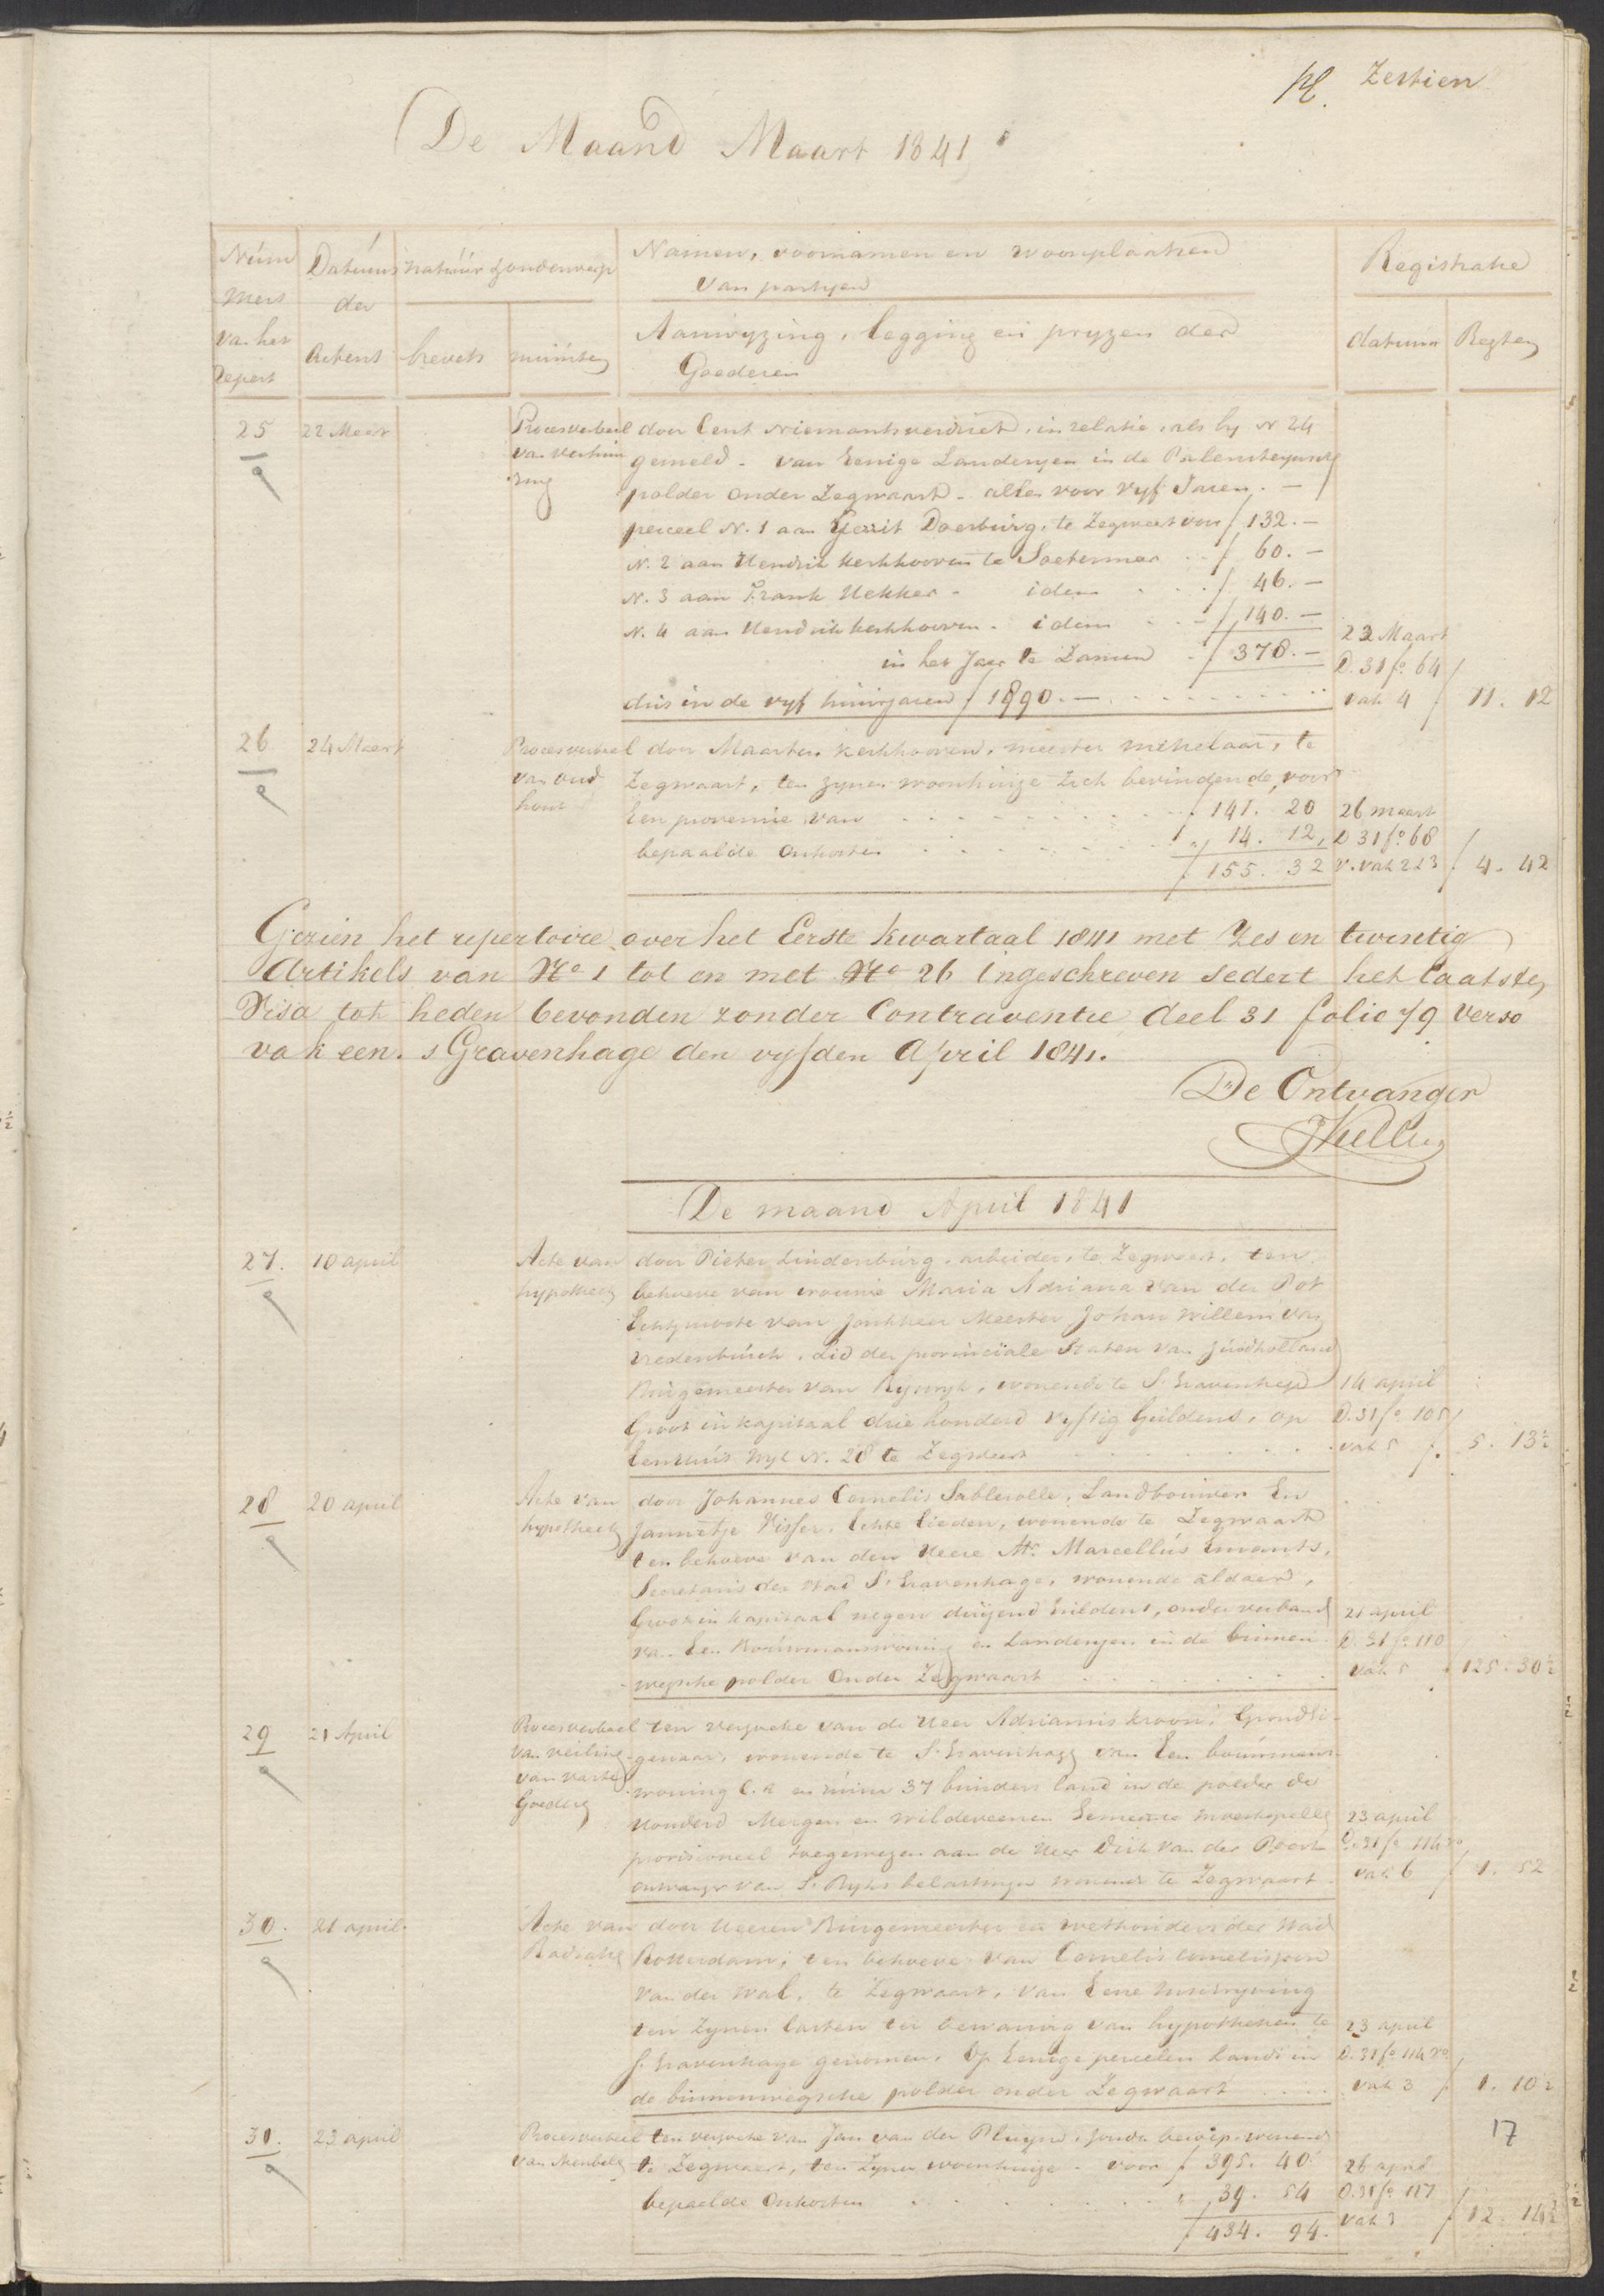 Zestien
De Maand Maart 1841
Num
mers
van het
Repert
Datums
der
Actens
natuur & onderwerp
brevets
minuten
Namen, voornamen en woonplaatsen
van partyen
Aanwyzing, legging en pryzen der
Goederen
Registratie
datum
Regten
25
22 Maart
Procesverbael
van verhuu
ring
door Cent Niemantsverdriet, in relatie, als by N 24
gemeld - van Eenige Landeryen in de Palensteynsche
polder onder Zegwaart - alles voor vyf Jaren. -
perceel N. 1 aan Gerrit Doesburg, te Zegwaart voor f 132. -
N. 2 aan Hendrik Kerkhooven te Soetermeer .. f 60. -
N. 3 aan Frank Hekker - idem . . . f 46. -
N. 4 aan Hendrik Kerkhooven - idem . . - f 140. -
in het Jaar te Zamen - f 378. -
dus in de vyf huurjaren f 1890. -
22 Maart
D. 31 fo. 64
vak 4
f 11. 12
26
24 Maart
Procesverbael
van oud
hout
door Maarten Kerkhooven, meester metselaar, te
Zegwaart, ten zynen woonhuize zich bevindende, voor
Een provenue van . . . f 141. 20
bepaalde Onkosten . . . " 14. 12,
f 155. 32
26 maart
D 31 fo. 68
v. vak 2 & 3
f 4. 42
Gezien het repertoire over het Eerste kwartaal 1841 met Zes en twintig
Artikels van No 1 tot en met No 26 ingeschreven sedert het laatste
Visa tot heden bevonden zonder Contraventie deel 31 folio 79 verso
vak een. s Gravenhage den vyfden April 1841.
De Ontvanger
De maand April 1841
27.
10 april
Acte van
hypotheek
door Pieter Lindenburg, arbeider, te Zegwaart, ten
behoeve van vrouwe Maria Adriana van der Pot
Echtgenoote van Jonkheer Meester Johan Willem van
Vredenburch, Lid der provinciale Staten van Zuidholland
Burgemeester van Ryswyk, wonende te S. Gravenhage
Groot in kapitaal drie honderd vyftig Guldens, op
Een huis wyk N. 28 te Zegwaart
14 april
D. 31 fo 105
vak 5
f. 5. 13½
28
20 april
Acte van
hypotheek
door Johannes Cornelis Sablerolle, Landbouwer En
Jannetje Visser, Echte lieden, wonende te Zegwaart
ten behoeve van den Heere Mr. Marcellus Emants,
Secretaris der Stad S. Gravenhage, wonende aldaar,
Groot in kapitaal negen duizend Guldens, onder verband
van Een Bouwmanswoning en Landeryen in de binnen
wegsche polder Onder Zegwaart
21 april
D. 31 fo 110
vak 5
125. 30½
29
21 April
Procesverbael
van veiling
van vaste
Goederen
ten verzoeke van de Heer Adrianus Kroon, Grondei-
genaar, wonende te S. Gravenhage van Een bouwmans
woning C. A en ruim 37 bunders land in de polder de
Honderd Morgen en Wildeveenen Gemeente Moerkapelle
provisioneel toegewezen aan de Heer Dirk van der Poort
ontvanger van S. Ryks belastingen wonende te Zegwaart.
23 april
D. 31 fo 114 vo
vak 6
f 1. 52
30.
21 april.
Acte van
Radiatie
door Heeren Burgemeester en wethouders der Stad
Rotterdam, ten behoeve van Cornelis Corneliszoon
van der Wal, te Zegwaart, van Eene Inschryving
ten Zynen lasten ter bewaring van hypotheken te
S. Gravenhage genomen, Op Eenige perceelen Lands in
de binnenwegsche polder onder Zegwaart
23 april
D. 31 fo 114 vo
vak 3
f 1. 10½
31.
23 april
Procesverbael
van Meubelen
ten verzoeke van Jan van der Pluym, zonder beroep, wonend
te Zegwaart, ten Zynen woonhuize - voor f 395. 40.
bepaelde Onkosten . . . " 39. 54
f 434. 94.
26 april
D. 31 fo 117
vak 3
f 12. 14½
17